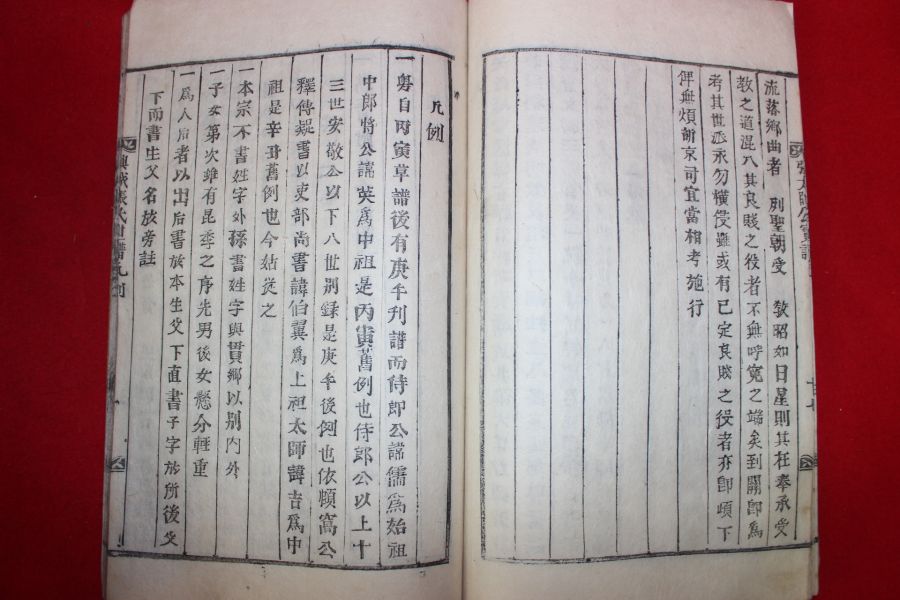 流落鄉曲者 列聖朝受 敎昭如日星則其在奉承受
敎之道混入其良賤之役者不無呼冤之端矣到關卽爲
考其世派永勿橫侵雖或有已定良賤之役者亦卽頉下
俾無煩訴京司宜當相考施行
凡例
一舅自丙寅草譜後有庚午刊譜而侍郎公諱儒爲始祖
中郎將公諱英爲中祖是丙寅舊例也侍郎公以上十
三世安敬公以下八世別錄是庚午後例也依頻窩公
釋傳疑書以吏部尚書諱伯翼爲上祖太師諱吉爲中
祖是辛丑舊例也今姑從之
一本宗不書姓字外孫書姓字與貫鄉以別內外
一子女第次雖有昆季之序先男後女懸分輕重
一爲人后者以出后書於本生父下直書子字於所後父
下而書生父名於旁註